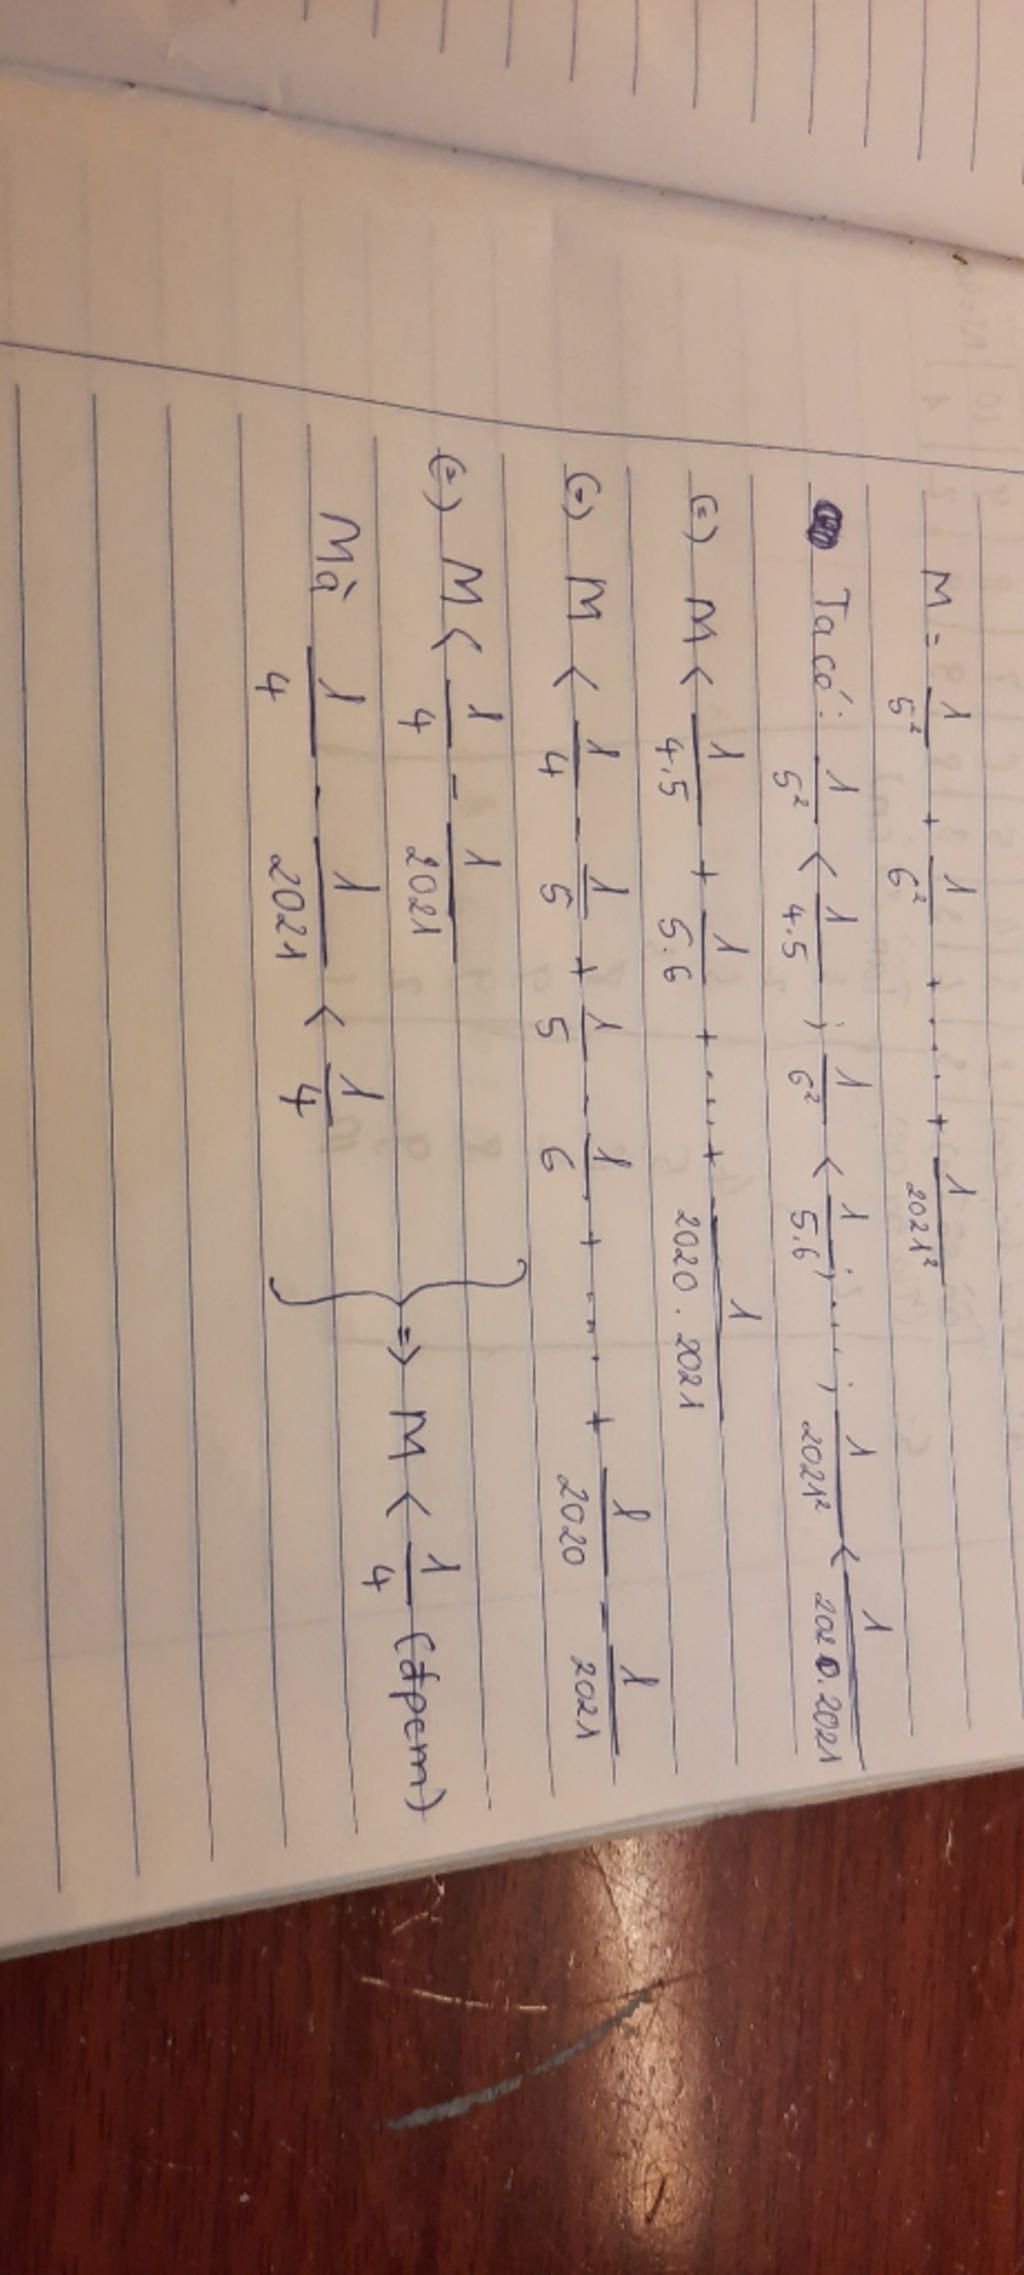 M = 1/5² + 1/6² + .... + 1/2021²
Ta có: 1/5² < 1/4.5 ; 1/6² < 1/5.6 ; .... ; 1/2021² < 1/2020.2021
(=) M < 1/4.5 + 1/5.6 + .... + 1/2020.2021
(=) M < 1/4 - 1/5 + 1/5 - 1/6 + ..... + 1/2020 - 1/2021
(=) M < 1/4 - 1/2021
Mà 1/4 - 1/2021 < 1/4
} => M < 1/4 (đpcm)